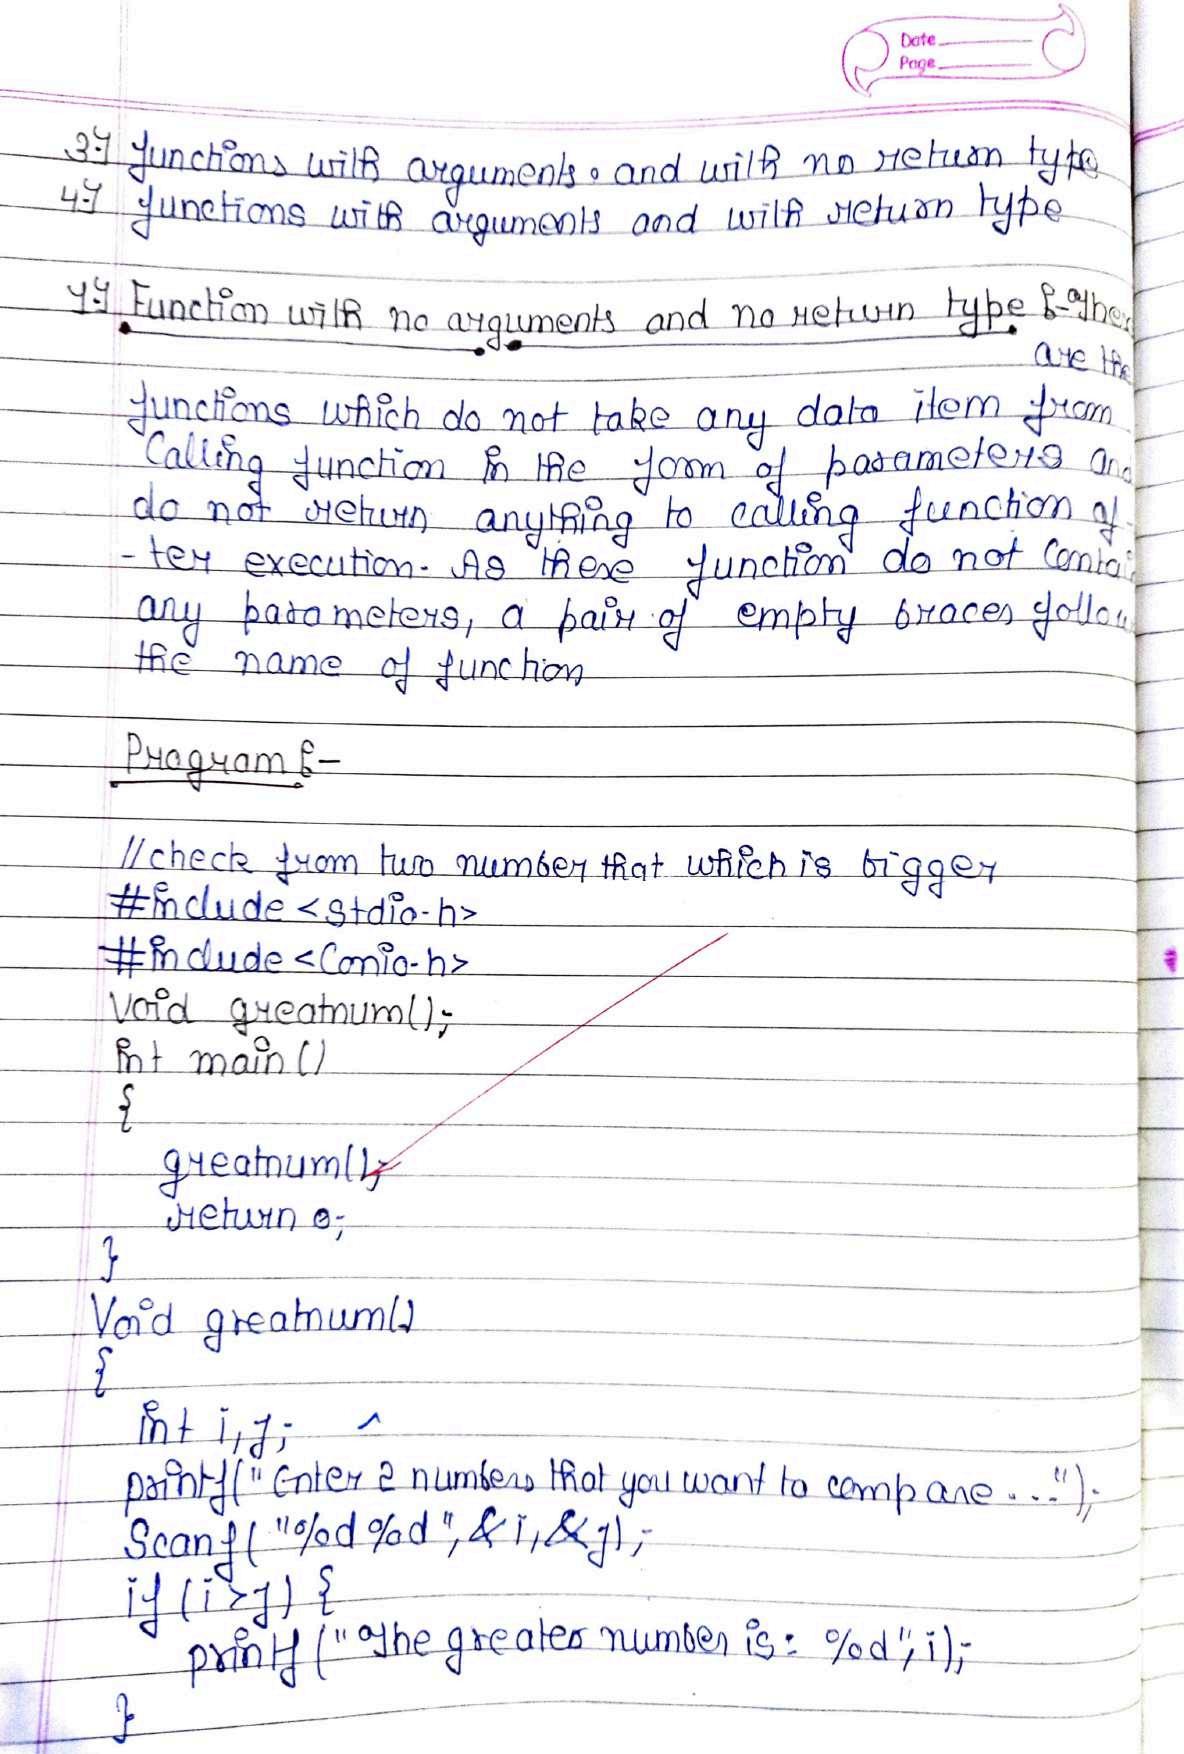 Date
Page
3→ functions with arguments. and with no return type
4→ functions with arguments and with return type
1→ Function with no arguments and no return type :- Ther
are the
functions which do not take any data item from
Calling function in the form of parameters and
do not return anything to calling function af
-ter execution. As these function do not Contai
any parameters, a pair of empty braces follow
the name of function
Program :-
//check from two number that which is bigger
#include <stdio.h>
#include <Conio.h>
Void greatnum();
int main()
{
greatnum();
return 0;
}
Void greatnum()
{
int i, j;
printf("Enter 2 numbers that you want to compare...");
Scanf("%d %d", &i, &j);
if (i>j) {
printf("The greater number is: %d", i);
}